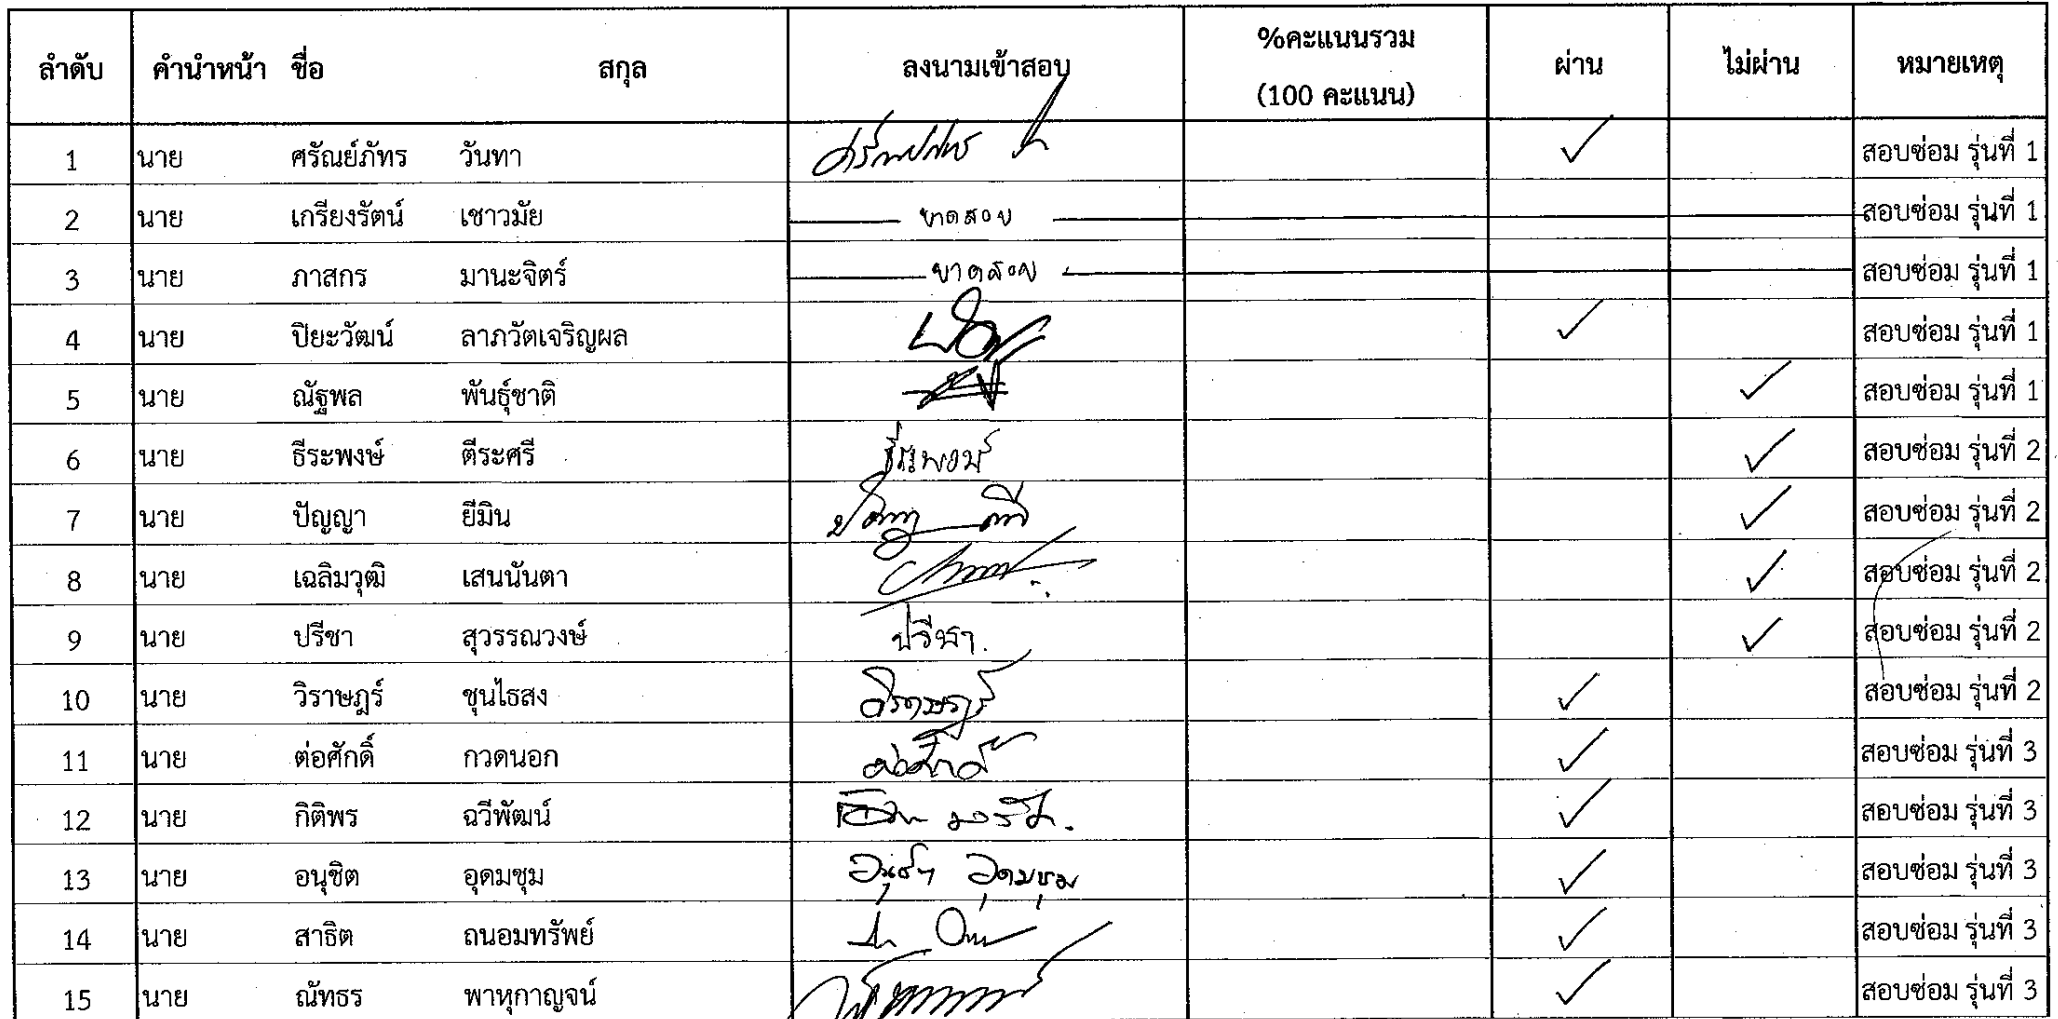 ลำดับ คำนำหน้า ชื่อ สกุล ลงนามเข้าสอบ %คะแนนรวม (100 คะแนน) ผ่าน ไม่ผ่าน หมายเหตุ
1 นาย ศรัณย์ภัทร วันทา ✓ สอบซ่อม รุ่นที่ 1
2 นาย เกรียงรัตน์ เชาวมัย ขาดสอบ สอบซ่อม รุ่นที่ 1
3 นาย ภาสกร มานะจิตร์ ขาดสอบ สอบซ่อม รุ่นที่ 1
4 นาย ปิยะวัฒน์ ลาภวัตเจริญผล ✓ สอบซ่อม รุ่นที่ 1
5 นาย ณัฐพล พันธุ์ชาติ ✓ สอบซ่อม รุ่นที่ 1
6 นาย ธีระพงษ์ ตีระศรี ธีระพงษ์ ✓ สอบซ่อม รุ่นที่ 2
7 นาย ปัญญา ยีมิน ✓ สอบซ่อม รุ่นที่ 2
8 นาย เฉลิมวุฒิ เสนนันตา ✓ สอบซ่อม รุ่นที่ 2
9 นาย ปรีชา สุวรรณวงษ์ ปรีชา. ✓ สอบซ่อม รุ่นที่ 2
10 นาย วิราษฎร์ ชุนไธสง วิราษฎร์ ✓ สอบซ่อม รุ่นที่ 2
11 นาย ต่อศักดิ์ กวดนอก ต่อศักดิ์ ✓ สอบซ่อม รุ่นที่ 3
12 นาย กิติพร ฉวีพัฒน์ ✓ สอบซ่อม รุ่นที่ 3
13 นาย อนุชิต อุดมชุม อนุชิต อุดมชุม ✓ สอบซ่อม รุ่นที่ 3
14 นาย สาธิต ถนอมทรัพย์ ✓ สอบซ่อม รุ่นที่ 3
15 นาย ณัทธร พาหุกาญจน์ ✓ สอบซ่อม รุ่นที่ 3